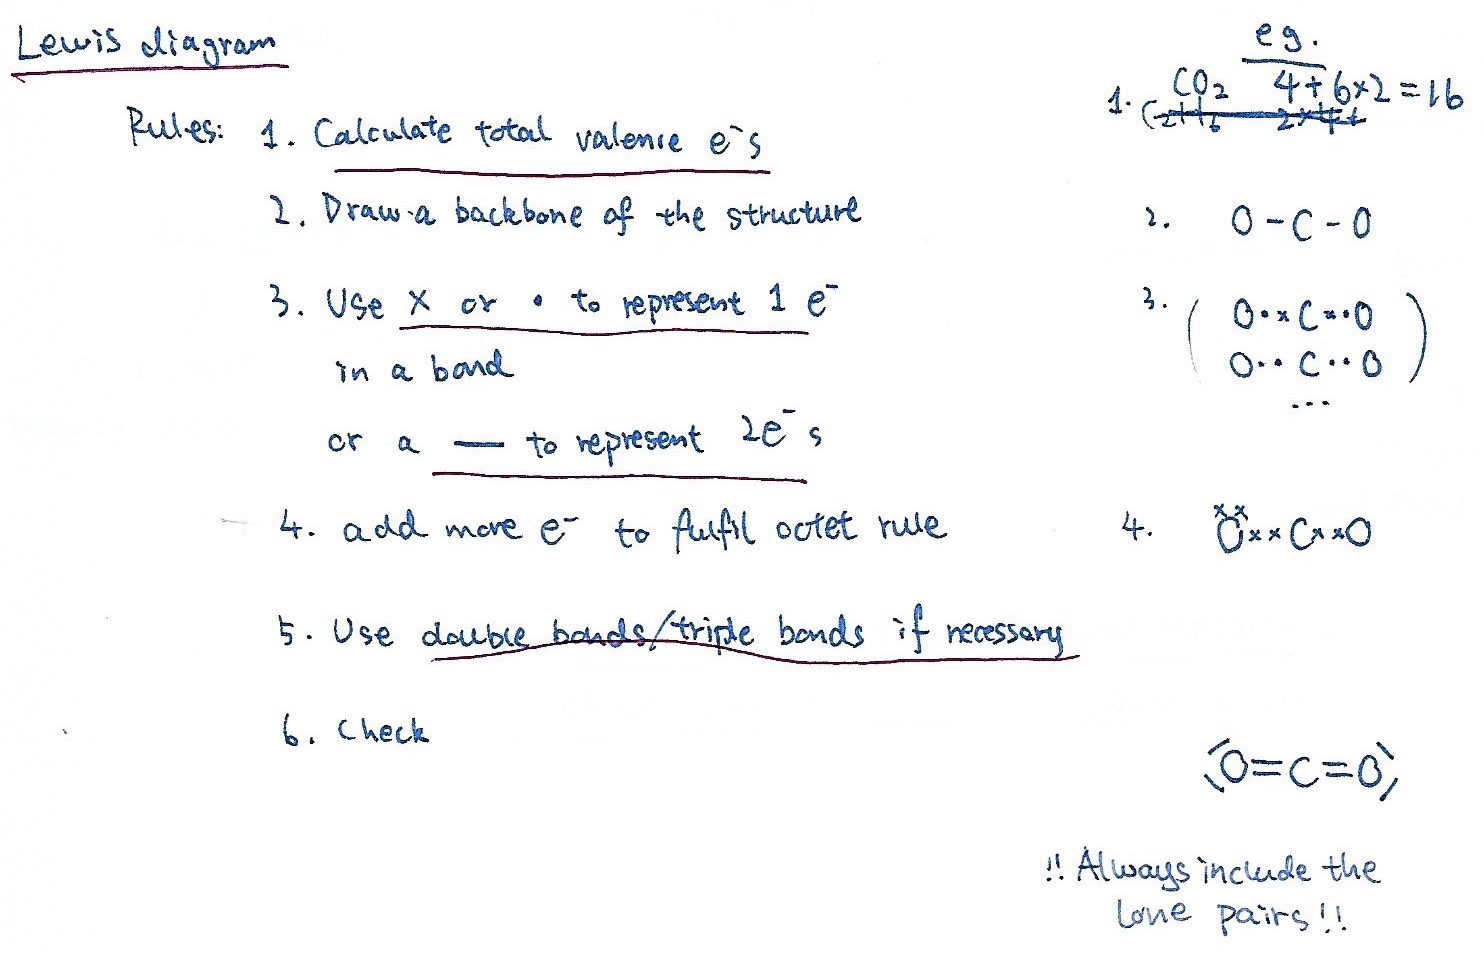 Lewis diagram
eg.
Rules: 1. Calculate total valence e⁻s
1. CO₂ 4+6×2=16
2. Draw a backbone of the structure
2. O-C-O
3. Use × or • to represent 1 e⁻
in a bond
or a — to represent 2e⁻s
3. ( O•×C×•O
O••C••O )
...
4. add more e⁻ to fulfil octet rule
4. ××O××C××O
5. Use double bonds/triple bonds if necessary
6. Check
O=C=O
!! Always include the
lone pairs !!